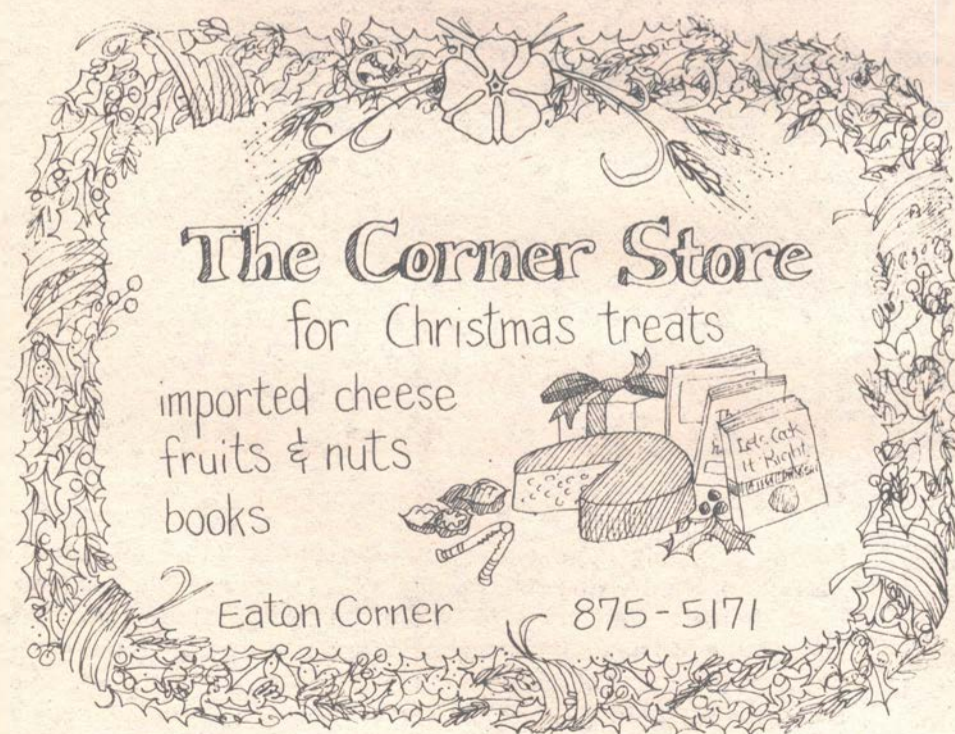 The Corner Store
for Christmas treats
imported cheese
fruits & nuts
books
Let's Cook
It Right
Eaton Corner 875-5171